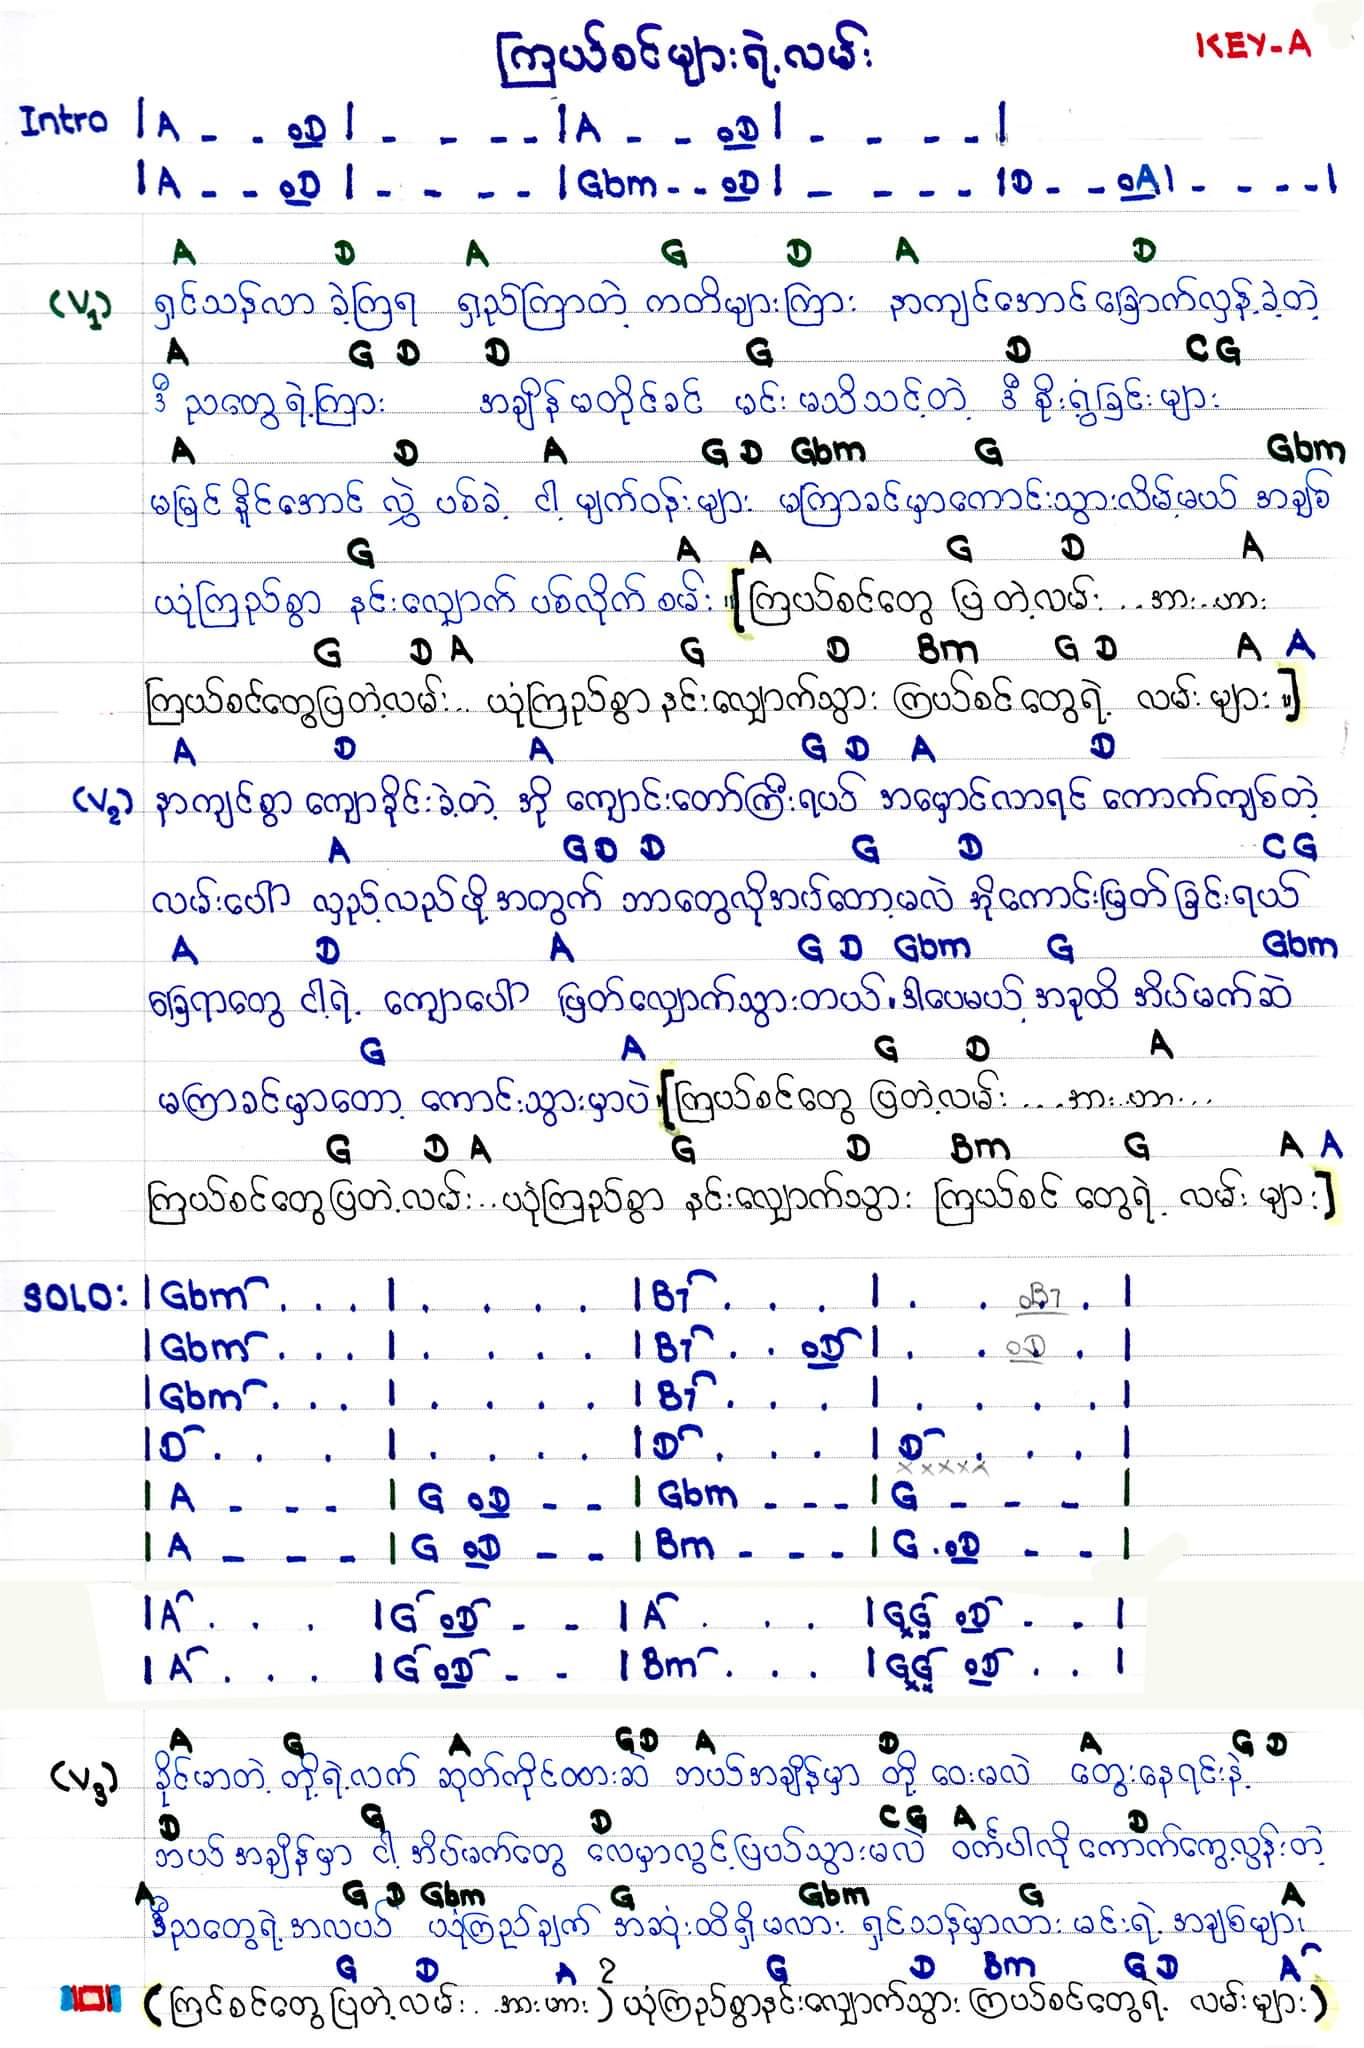 ကြယ်စင်များရဲ့လမ်း
KEY-A
Intro |A - - oD | - - - - |A - - oD | - - - - |
|A - - oD | - - - - |Gbm - - oD | - - - - |D - - oA | - - - - |
A D A G D A D
(V1) ရှင်သန်လာ ခဲ့ကြရ ရှည်ကြာတဲ့ ကတိများကြား နာကျင်အောင် ခြောက်လှန့်ခဲ့တဲ့
A G D D G D C G
ဒီ ညတွေရဲ့ကြား အချိန်မတိုင်ခင် မင်းမသိသင့်တဲ့ ဒီ စိုးရွံ့ခြင်းများ
A D A G D Gbm G Gbm
မမြင်နိုင်အောင် လွှဲ ပစ်ခဲ့ ငါ့ မျက်ဝန်းများ မကြာခင်မှာကောင်းသွားလိမ့်မယ် အချစ်
G A A G D A
ယုံကြည်စွာ နင်းလျှောက် ပစ်လိုက်စမ်း [ကြယ်စင်တွေ ပြတဲ့လမ်း ..အား..ဟား
G D A G D Bm G D A A
ကြယ်စင်တွေပြတဲ့လမ်း.. ယုံကြည်စွာ နင်းလျှောက်သွား ကြယ်စင်တွေရဲ့ လမ်းများ]
A D A G D A D
(V2) နာကျင်စွာ ကျောခိုင်းခဲ့တဲ့ အို ကျောင်းတော်ကြီးရယ် အမှောင်လာရင် ကောက်ကျစ်တဲ့
A G D D G D C G
လမ်းပေါ် လှည့်လည်ဖို့အတွက် ဘာတွေလိုအပ်တော့မလဲ အိုကောင်းမြတ်ခြင်းရယ်
A D A G D Gbm G Gbm
ခြေရာတွေ ငါ့ရဲ့ ကျောပေါ် ဖြတ်လျှောက်သွားတယ်. ဒါပေမယ့် အခုထိ အိပ်မက်ဆဲ
G A G D A
မကြာခင်မှာတော့ ကောင်းသွားမှာပဲ [ကြယ်စင်တွေ ပြတဲ့လမ်း ....အား..ဟာ...
G D A G D Bm G A A
ကြယ်စင်တွေပြတဲ့လမ်း..ယုံကြည်စွာ နင်းလျှောက်သွား ကြယ်စင်တွေရဲ့ လမ်းများ]
SOLO: |Gbm . . . | . . . . |B7 . . . | . . oB7 . |
|Gbm . . . | . . . . |B7 . . oD | . . oD . |
|Gbm . . . | . . . . |B7 . . . | . . . . |
|D . . . | . . . . |D . . . |D . . . |
xxxxx
|A - - - |G oD - - |Gbm - - - |G - - - |
|A - - - |G oD - - |Bm - - - |G . oD - - |
|A . . . |G oD - - |A . . . |GG oD . . |
|A . . . |G oD - - |Bm . . . |GG oD . . |
A G A GD A D A G D
(V3) ခိုင်မာတဲ့ တို့ရဲ့လက် ဆုတ်ကိုင်ထားဆဲ ဘယ်အချိန်မှာ တို့ ဝေးမလဲ တွေးနေရင်းနဲ့
D G D C G A D
ဘယ်အချိန်မှာ ငါ့ အိပ်မက်တွေ လေမှာလွင့်ပြယ်သွားမလဲ ဝင်္ကပါလို ကောက်ကွေ့လွန်းတဲ့
A G D Gbm G Gbm G A
ဒီညတွေရဲ့အလယ် ယုံကြည်ချက် အဆုံးထိရှိမလား ရှင်သန်မှာလား မင်းရဲ့ အချစ်များ
G D A 2 G D Bm G D A
(ကြင်စင်တွေပြတဲ့လမ်း..အားဟား) ယုံကြည်စွာနင်းလျှောက်သွား ကြယ်စင်တွေရဲ့ လမ်းများ)